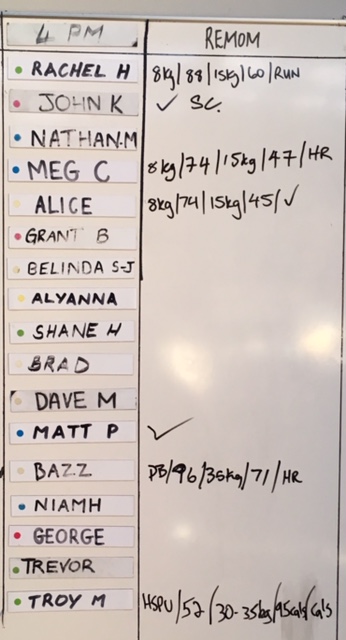 4 PM REMOM
RACHEL H 8kg/88/15kg/60/RUN
JOHN K ✓ SC.
NATHAN.M
MEG C 8kg/74/15kg/47/HR
ALICE 8kg/74/15kg/45/✓
GRANT B
BELINDA S-J
ALYANNA
SHANE H
BRAD
DAVE M
MATT P ✓
BAZZ DB/96/35kg/71/HR
NIAMH
GEORGE
TREVOR
TROY M HSPU/52/30-35kg/95cals/Cals